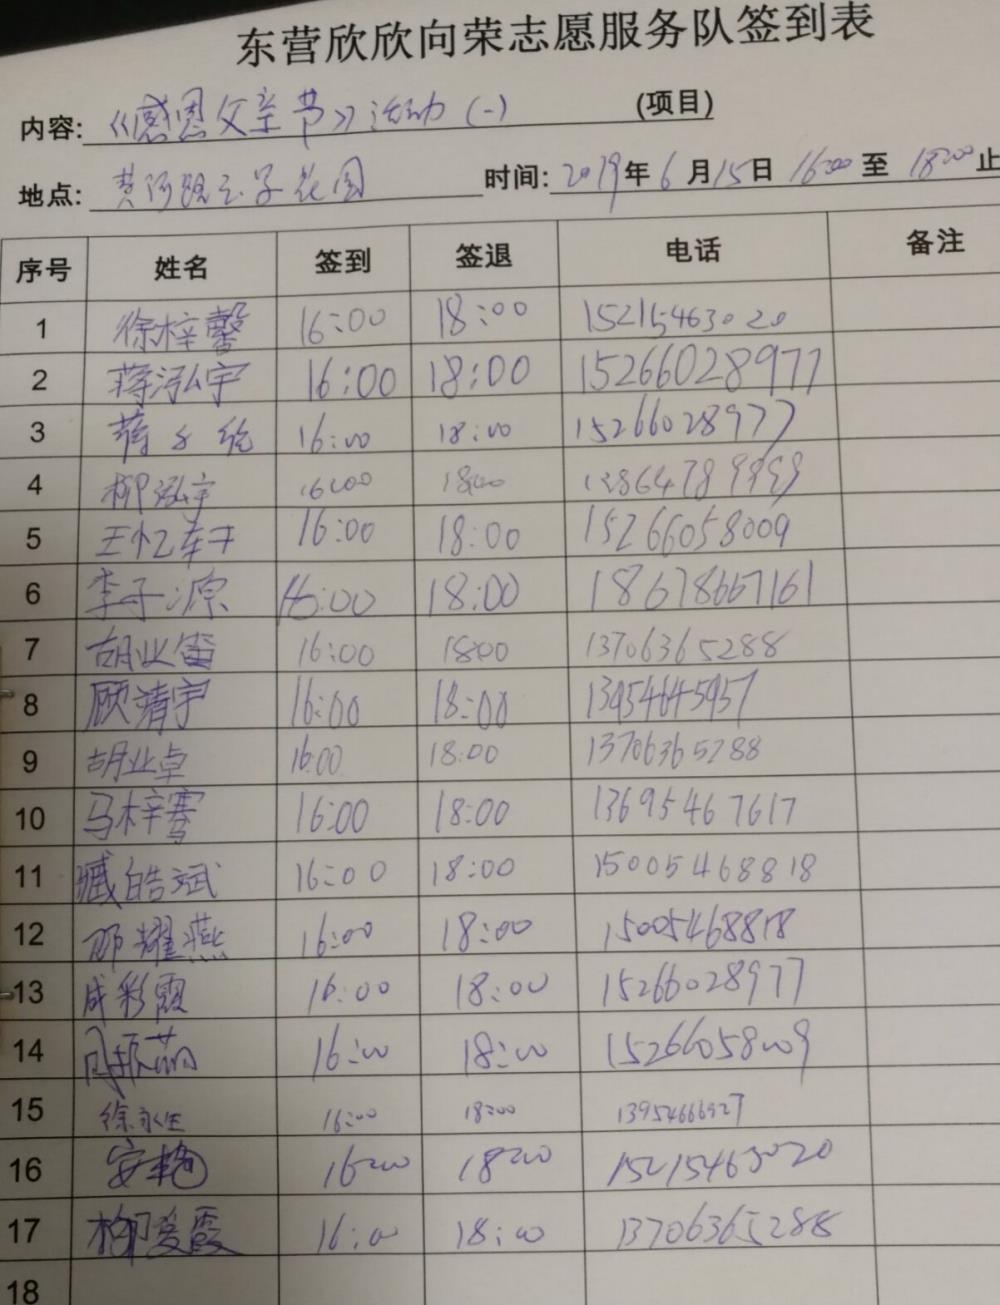 东营欣欣向荣志愿服务队签到表
内容: 《感恩父亲节》活动(一) (项目)
地点: 黄河 亲子花园 时间: 2019年6月15日 16:00至 18:00止
序号 姓名 签到 签退 电话 备注
1 徐梓馨 16:00 18:00 15215463020
2 蒋泓宇 16:00 18:00 15266028977
3 蒋 16:00 18:00 15266028977
4 柳泓宇 16:00 18:00 13864789999
5 王忆轩 16:00 18:00 15266058009
6 李子源 16:00 18:00 18678667161
7 胡业笛 16:00 18:00 13706365288
8 顾清宇 16:00 18:00 13954645957
9 胡业卓 16:00 18:00 13706365288
10 马梓骞 16:00 18:00 13695467617
11 臧皓斌 16:00 18:00 15005468818
12 邵耀燕 16:00 18:00 15005468818
13 成彩霞 16:00 18:00 15266028977
14 16:00 18:00 15266058009
15 徐永生 16:00 18:00 13954666927
16 安艳 16:00 18:00 15215463020
17 柳爱霞 16:00 18:00 13706365288
18